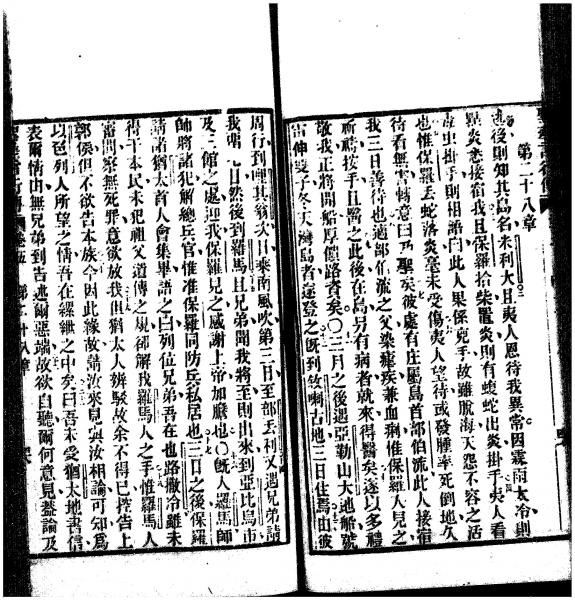 第二十八章
後則知其島名米利大且夷人恩待我異常因霖雨太冷則
點炎悉接宿我且保羅拾柴置炎則有蝮蛇出炎掛手夷人看
虫掛手則相語曰此人果係兇手故雖脫海天怨不容之活
也惟保羅丟蛇落炎毫未受傷夷人望待或發腫率死倒地久
待看無害轉意曰乃聖矣彼處有庄屬島首部伯流此人接宿
我三日善待也適部伯流之父染瘧疾兼血痢惟保羅入見之
祈禱按手且醫之此後在島另有病者就來得醫矣遂以多禮
敬我正將開船厚餽路者矣〇三月之後遇亞勒山大
冬
灣島者遂登之既到
古地三日住焉由彼
周行到
其翁次日乘南風吹第二日至部丟利又遇兄弟請
我
七日然後到羅馬且兄弟聞我將至則出來到亞比烏市
及三館之處迎我保羅見之感謝上帝加
也〇既入羅馬師
師將諸犯解總兵官惟准保羅同防兵私居也三日之後保羅
請諸猶太酋人會集畢語之曰列位兄弟吾在也路撒冷雖未
得干本民未犯祖父道傳之規卻解我羅馬人之手惟羅馬人
審問察無死罪意欲放我但猶太人辨駁故余不得已控告上
但不欲告本族今因此緣故請汝來見與汝相論可知為
以色列人所望之情吾在縲紲之中矣曰吾未受猶太地書信
表爾情由無兄弟到告述爾惡端故欲自聽爾何意見蓋論及